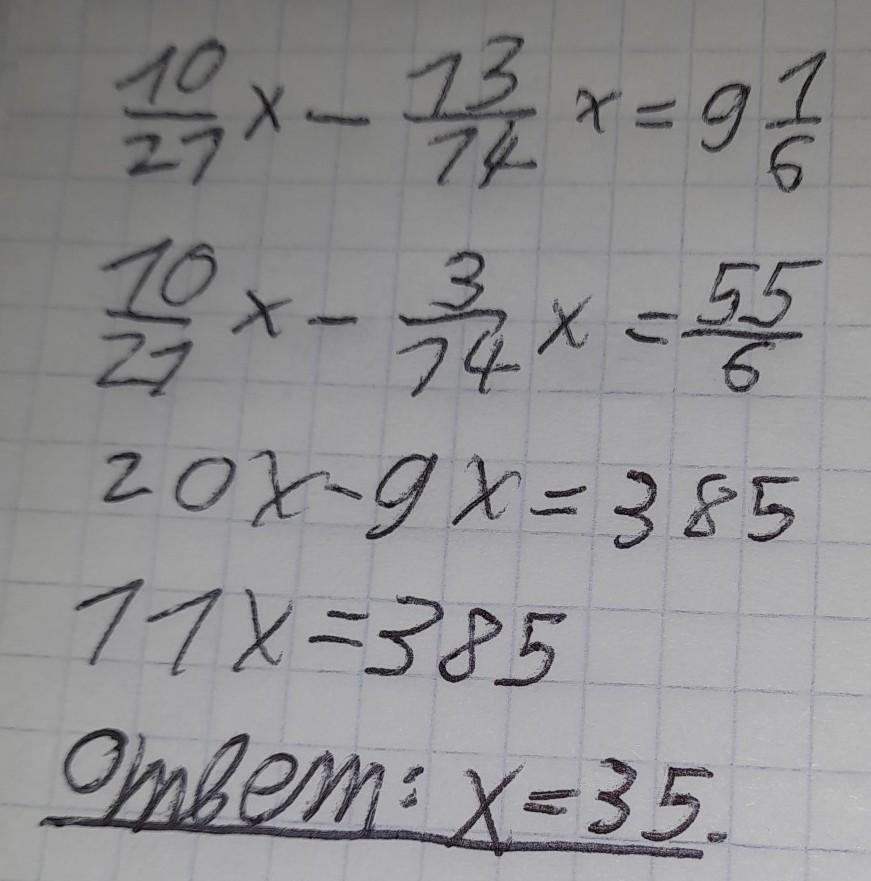 10/21 x - 13/14 x = 9 1/6
10/21 x - 3/14 x = 55/6
20x - 9x = 385
11x = 385
Ответ: x = 35.